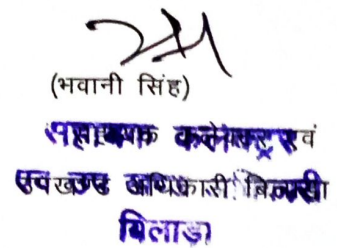 (भवानी सिंह)
सहायक कलेक्टर एवं
उपखण्ड अधिकारी बिलाड़ा
बिलाडा